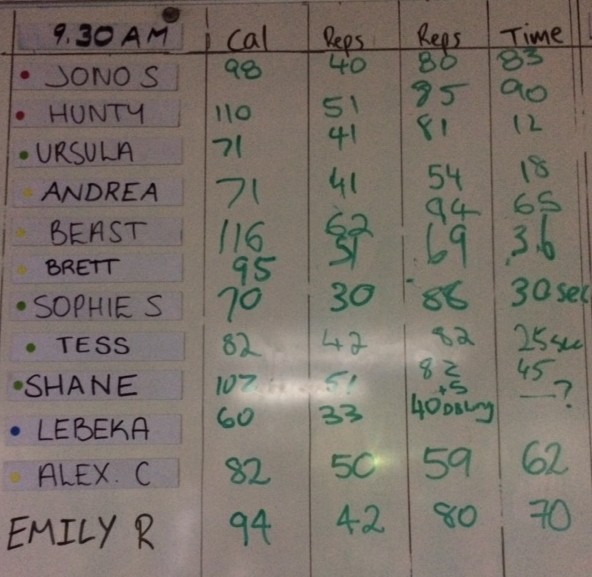 9.30 AM Cal Reps Reps Time
JONO S 98 40 80 83
HUNTY 110 51 85 90
URSULA 71 41 81 12
ANDREA 71 41 54 18
BEAST 116 62 94 65
BRETT 95 51 69 36
SOPHIE S 70 30 86 30 sec
TESS 82 42 82 25 sec
SHANE 107 51 82 +5 45
LEBEKA 60 33 40 —?
ALEX. C 82 50 59 62
EMILY R 94 42 80 70